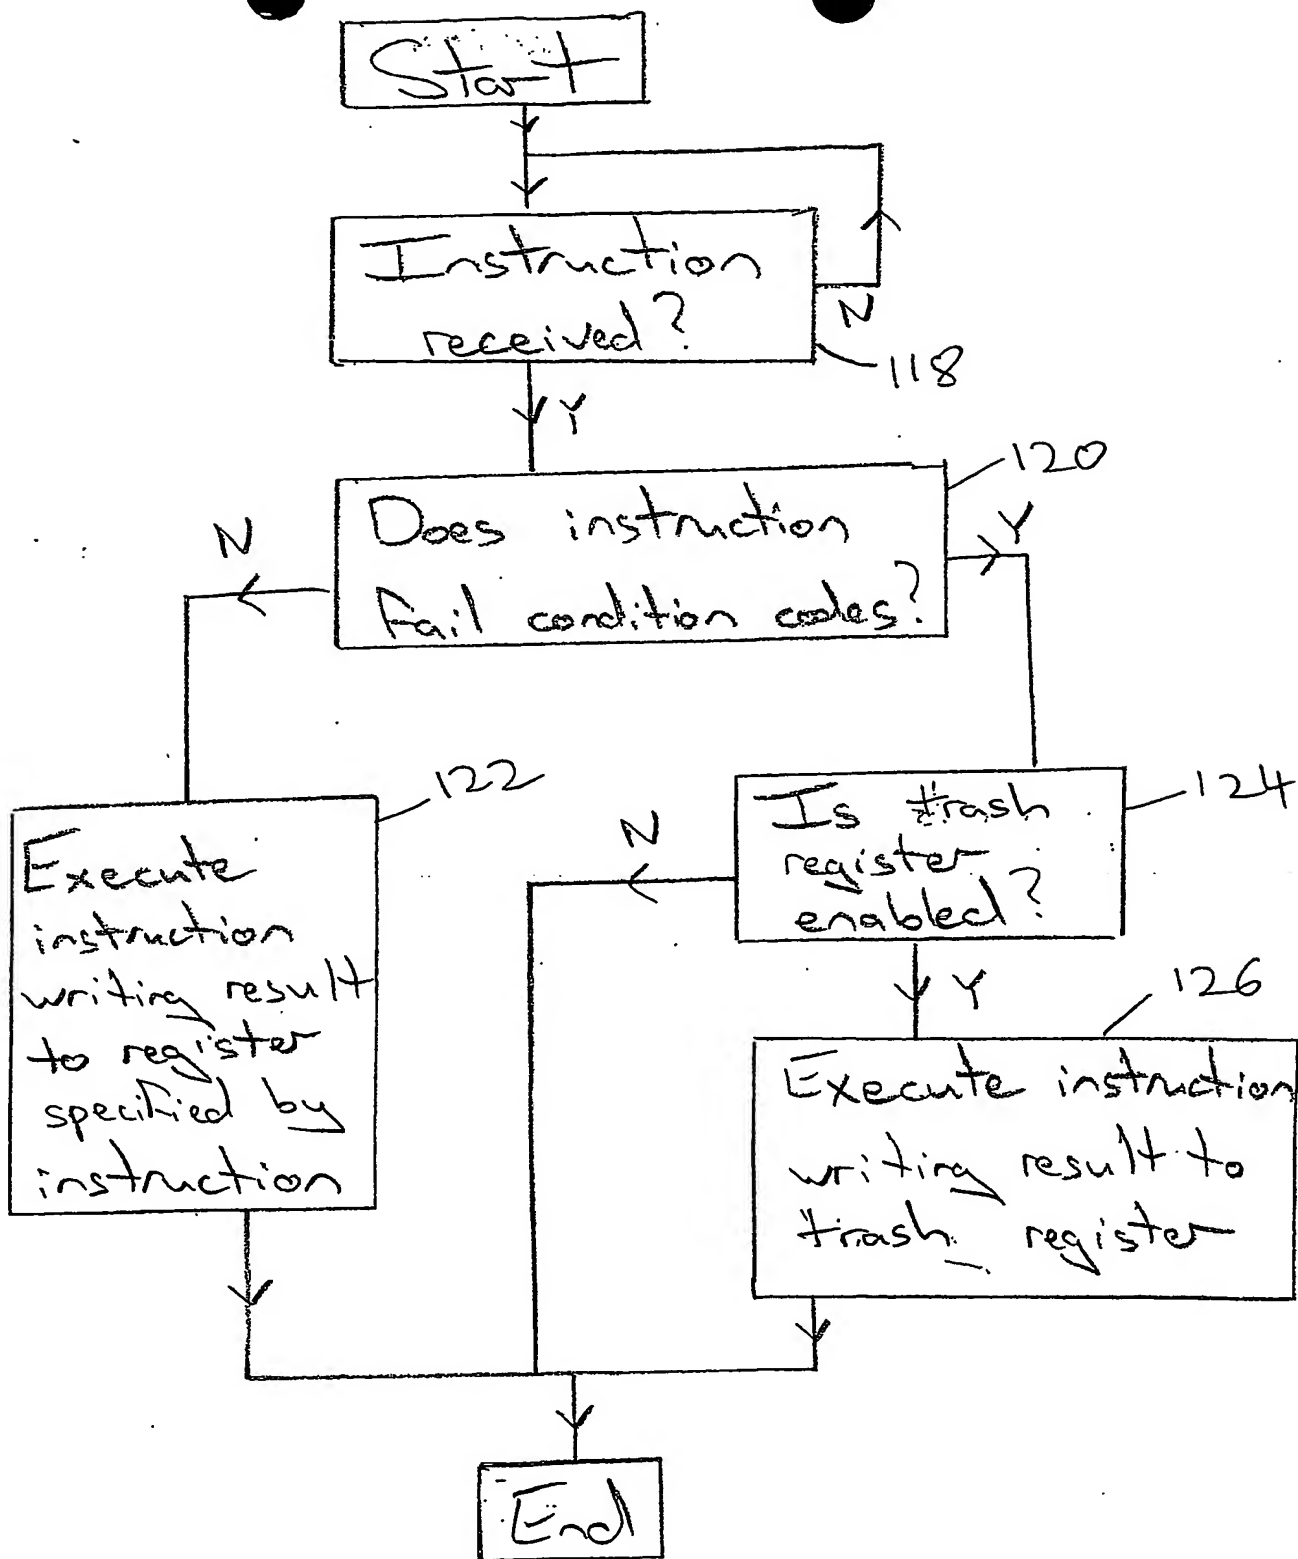 Start
Instruction
received?
N
118
Y
120
Does instruction
fail condition codes?
N
Y
122
Execute
instruction
writing result
to register
specified by
instruction
124
Is trash
register
enabled?
N
Y
126
Execute instruction
writing result to
trash register
End